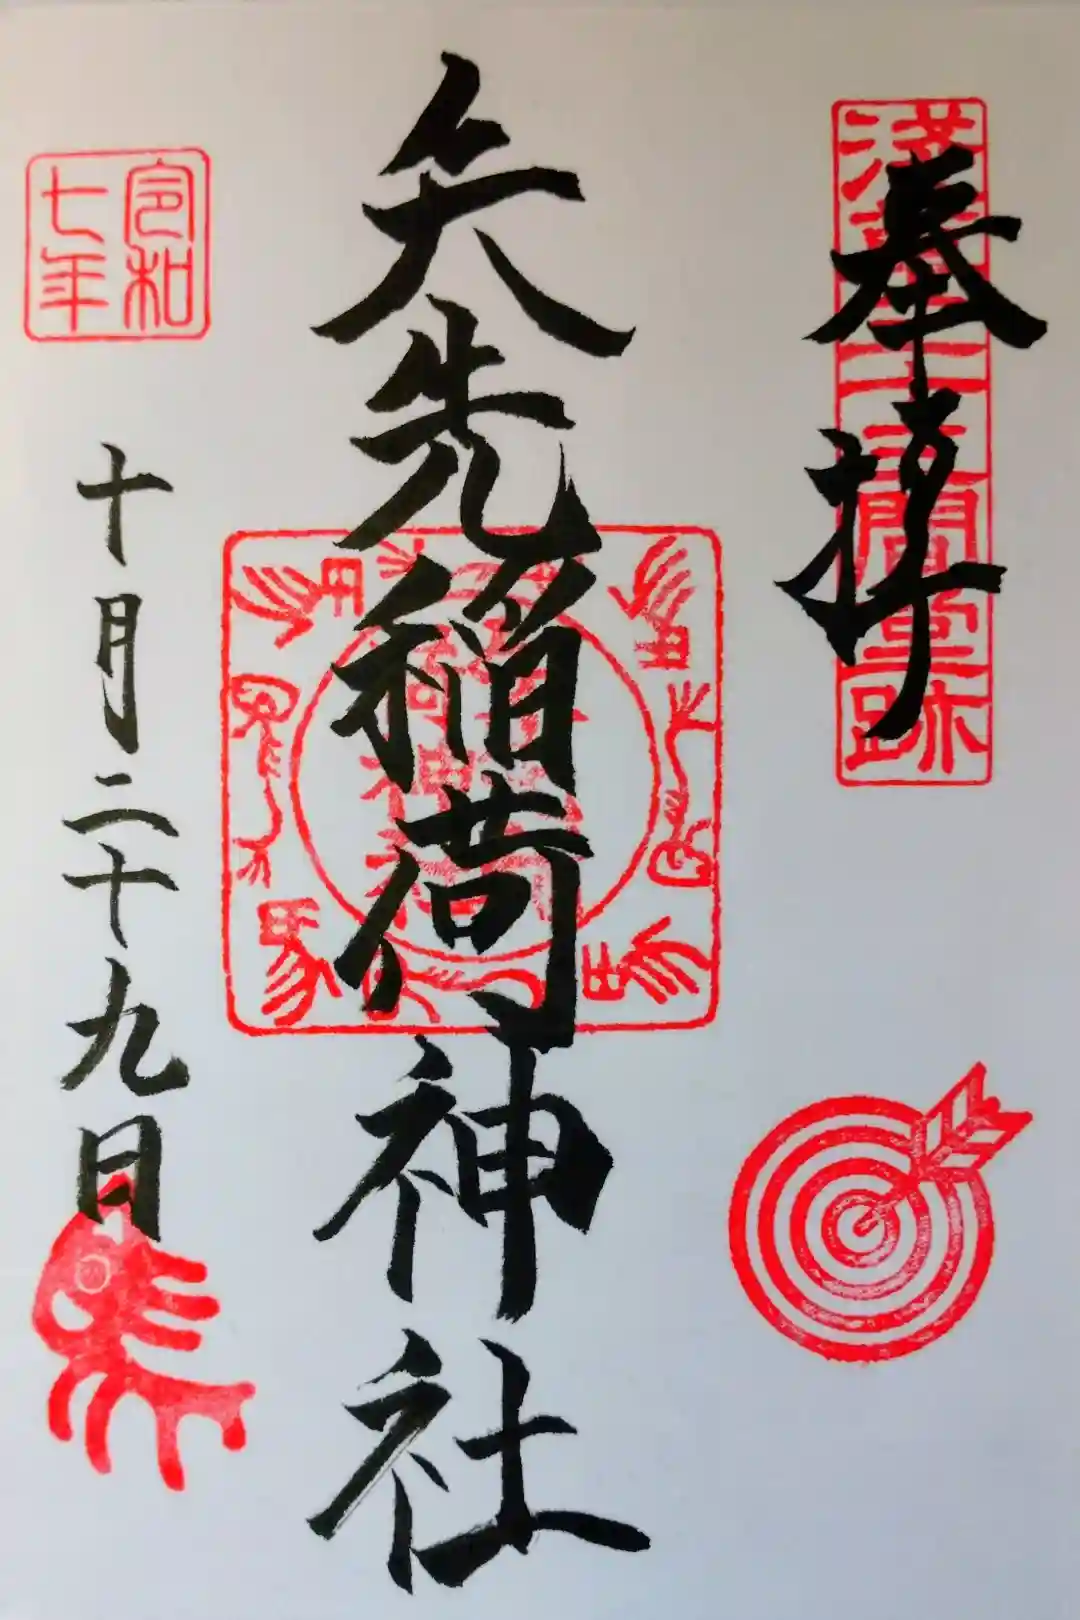 奉拝
浅草三十三間堂跡
矢先稲荷神社
令和七年
十月二十九日